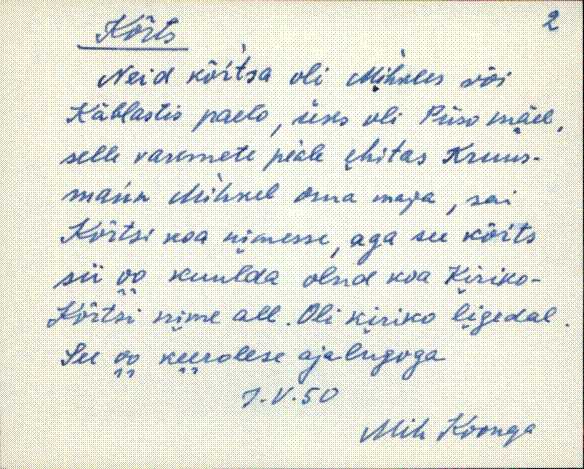 Kõrts 2
Neid kõŕtsa oli Mihkles või
Käblastis paelo, üks oli Piiso mäel,
selle varemete peale ehitas Kruus-
mańn Mihkel oma maja, sai
Kõrtsi koa nimesse, aga see kõŕts
sii oo kuulda olnd koa Kiriko-
Kõrtsi nime all. Oli kiriko ligedal.
See oo keerolese ajalugoga
7.V.50
Mih Koonga